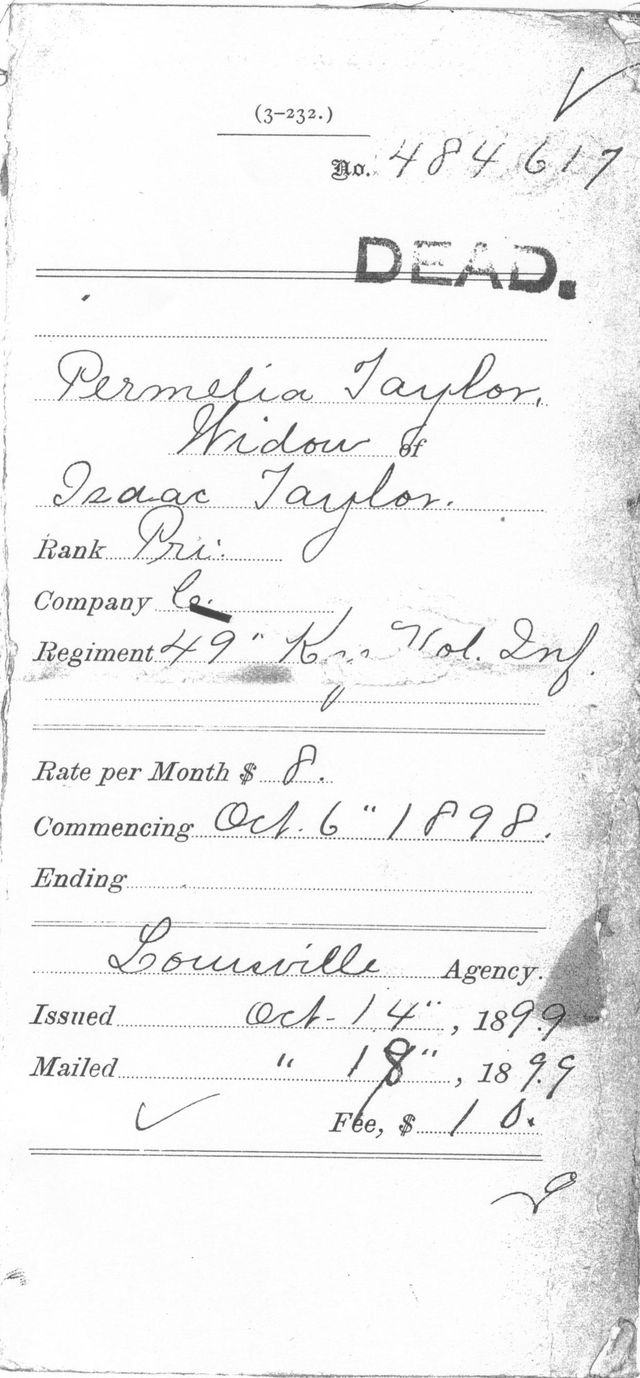 (3-232.)
No. 484617
DEAD.
Permelia Taylor,
Widow of
Isaac Taylor.
Rank Pri.
Company C.
Regiment 49" Ky. Vol. Inf.
Rate per Month $ 8.
Commencing Oct. 6" 1898.
Ending
Louisville Agency.
Issued Oct. 14", 1899
Mailed " 18", 1899
Fee, $ 10.